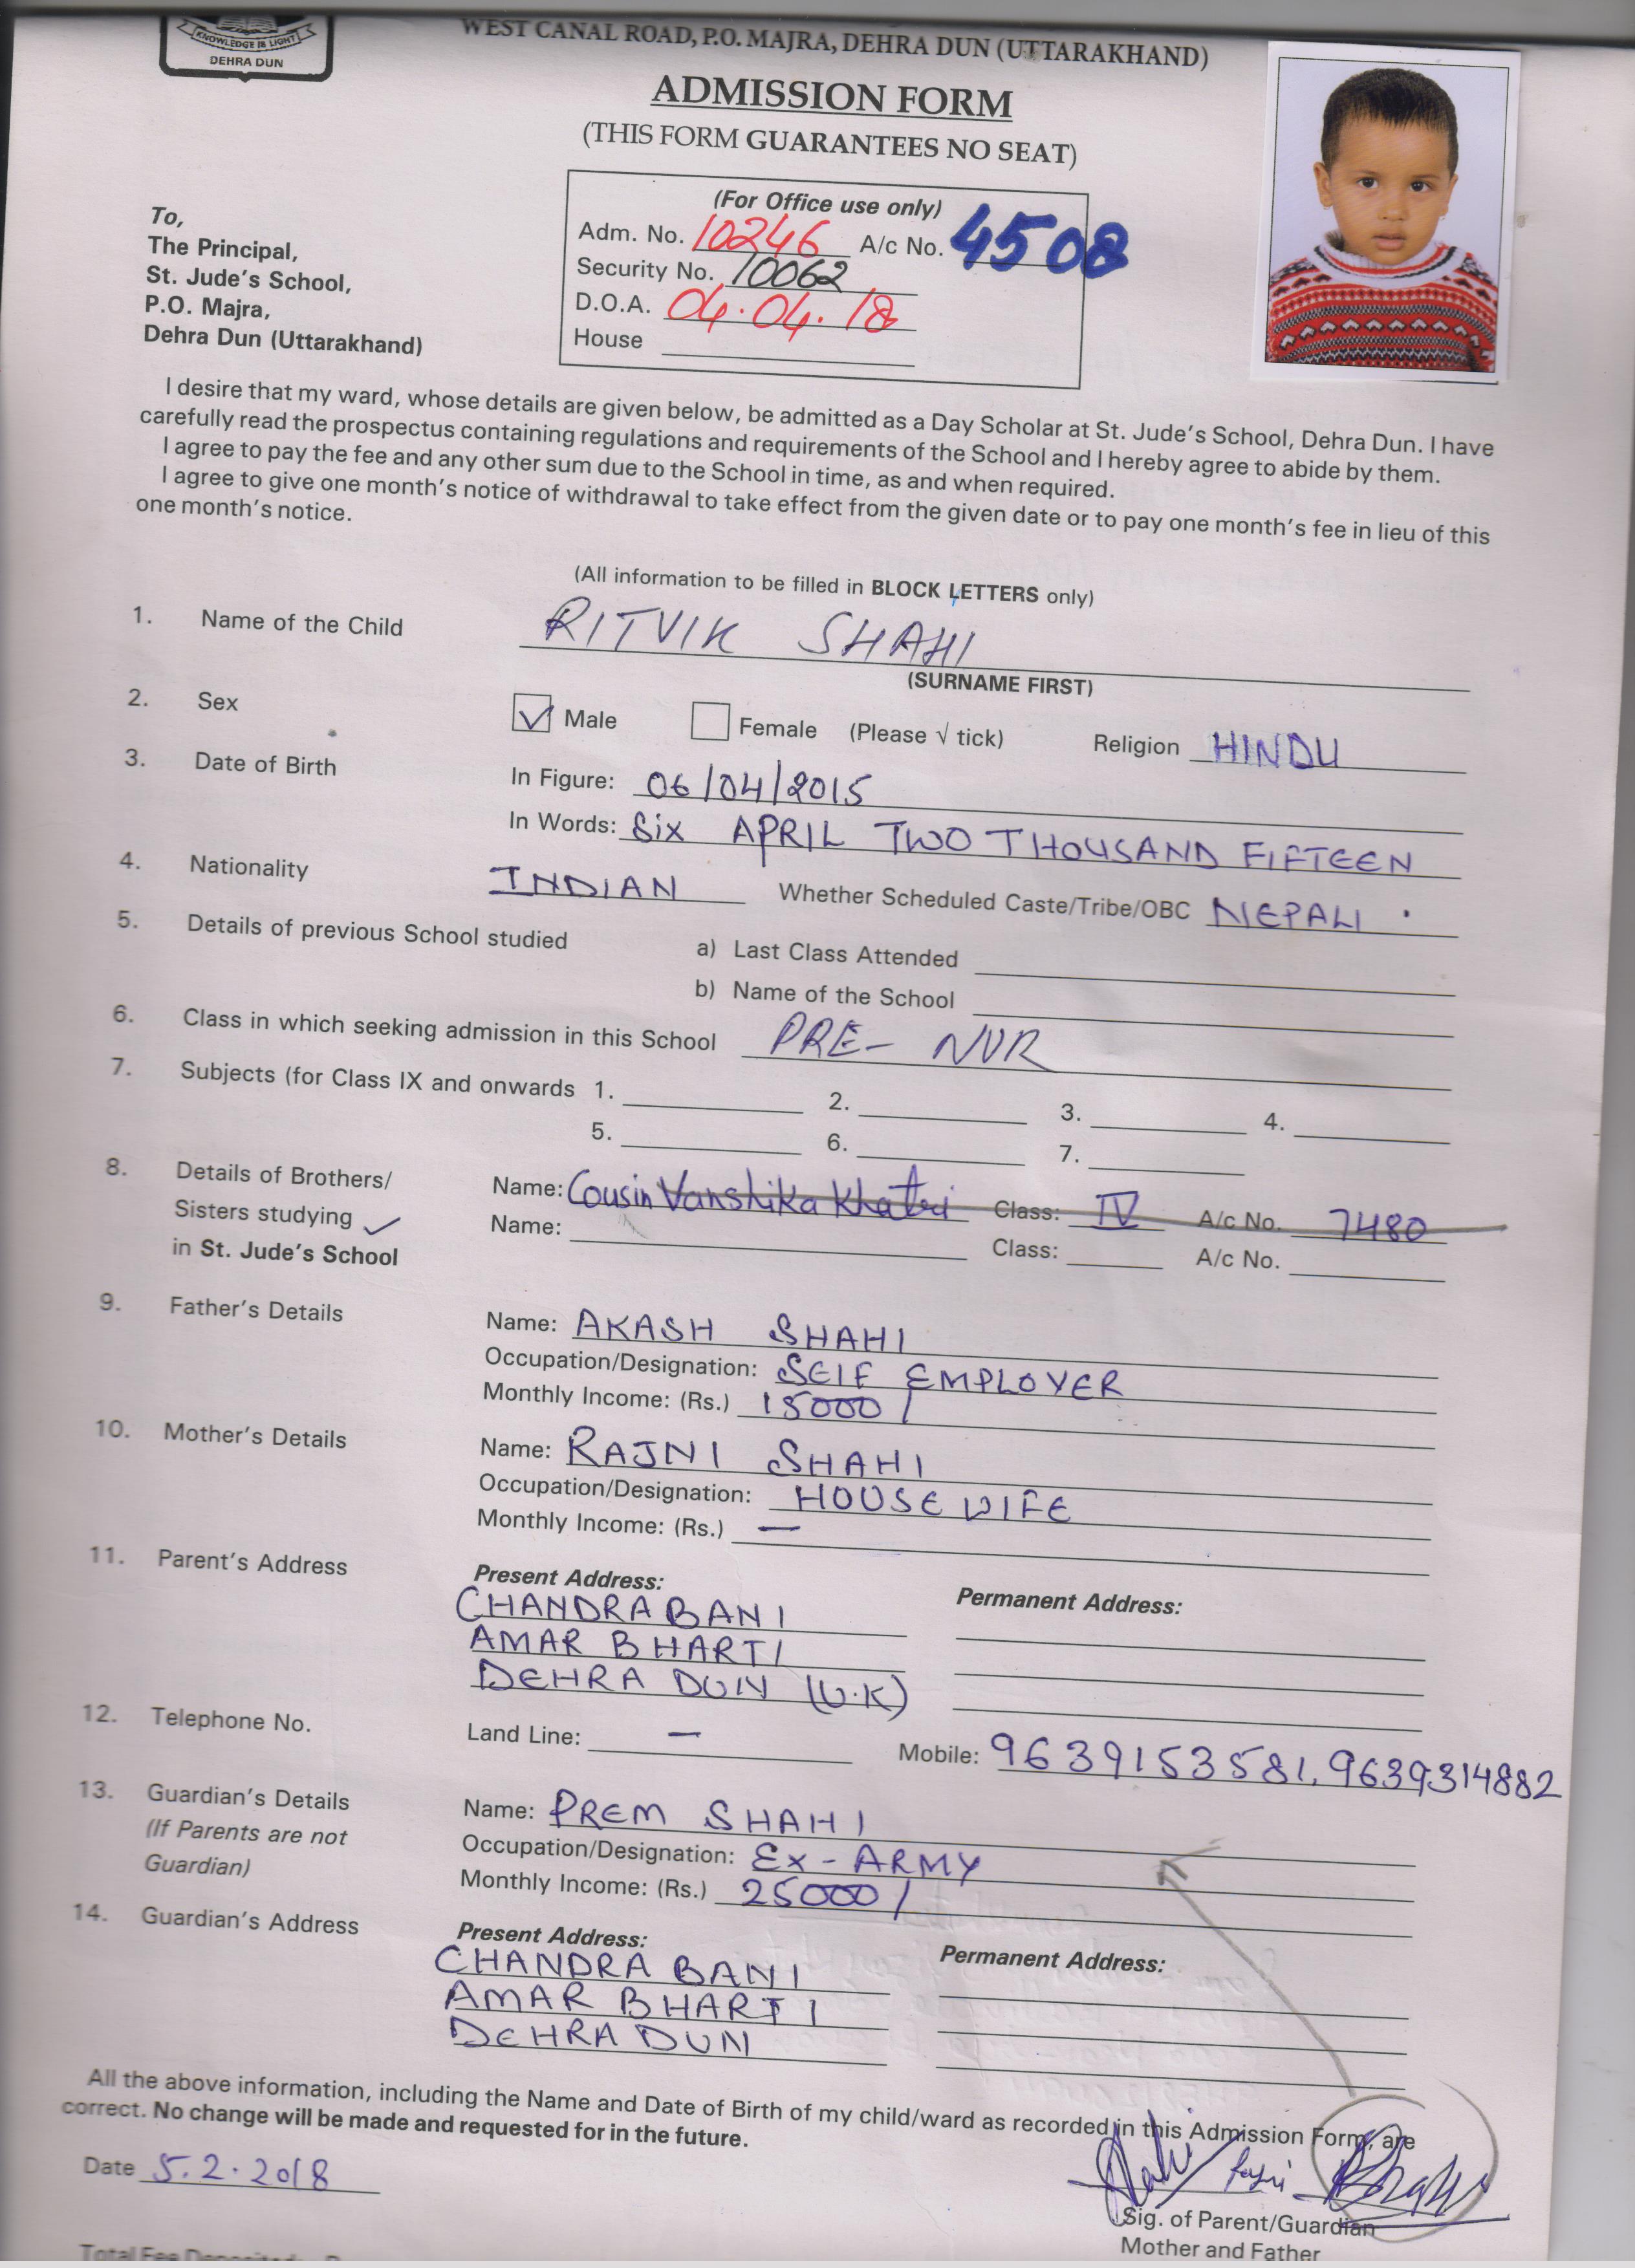 KNOWLEDGE IS LIGHT
DEHRA DUN
WEST CANAL ROAD, P.O. MAJRA, DEHRA DUN (UTTARAKHAND)
ADMISSION FORM
(THIS FORM GUARANTEES NO SEAT)
(For Office use only)
Adm. No. 10246 A/c No. 4508
Security No. 10062
D.O.A. 04.04.18
House
To,
The Principal,
St. Jude's School,
P.O. Majra,
Dehra Dun (Uttarakhand)
I desire that my ward, whose details are given below, be admitted as a Day Scholar at St. Jude's School, Dehra Dun. I have
carefully read the prospectus containing regulations and requirements of the School and I hereby agree to abide by them.
I agree to pay the fee and any other sum due to the School in time, as and when required.
I agree to give one month's notice of withdrawal to take effect from the given date or to pay one month's fee in lieu of this
one month's notice.
(All information to be filled in BLOCK LETTERS only)
1. Name of the Child RITVIK SHAHI
(SURNAME FIRST)
2. Sex Male Female (Please √ tick) Religion HINDU
3. Date of Birth In Figure: 06/04/2015
In Words: Six APRIL TWO THOUSAND FIFTEEN
4. Nationality INDIAN Whether Scheduled Caste/Tribe/OBC NEPALI .
5. Details of previous School studied a) Last Class Attended
b) Name of the School
6. Class in which seeking admission in this School PRE- NUR
7. Subjects (for Class IX and onwards 1. 2. 3. 4.
5. 6. 7.
8. Details of Brothers/ Name: Cousin Vanshika Khatri Class: IV A/c No. 7480
Sisters studying ✓ Name: Class: A/c No.
in St. Jude's School
9. Father's Details Name: AKASH SHAHI
Occupation/Designation: SElF EMPLOYER
Monthly Income: (Rs.) 15000/
10. Mother's Details Name: RAJNI SHAHI
Occupation/Designation: HOUSE WIFE
Monthly Income: (Rs.) —
11. Parent's Address Present Address: Permanent Address:
CHANDRA BANI
AMAR BHARTI
DEHRA DUN (U.K)
12. Telephone No. Land Line: — Mobile: 9639153581, 9639314882
13. Guardian's Details Name: PREM SHAHI
(If Parents are not Occupation/Designation: Ex-ARMY
Guardian) Monthly Income: (Rs.) 25000/
14. Guardian's Address Present Address: Permanent Address:
CHANDRA BANI
AMAR BHARTI
DEHRA DUN
All the above information, including the Name and Date of Birth of my child/ward as recorded in this Admission Form, are
correct. No change will be made and requested for in the future.
Date 5.2.2018
Sig. of Parent/Guardian
Mother and Father